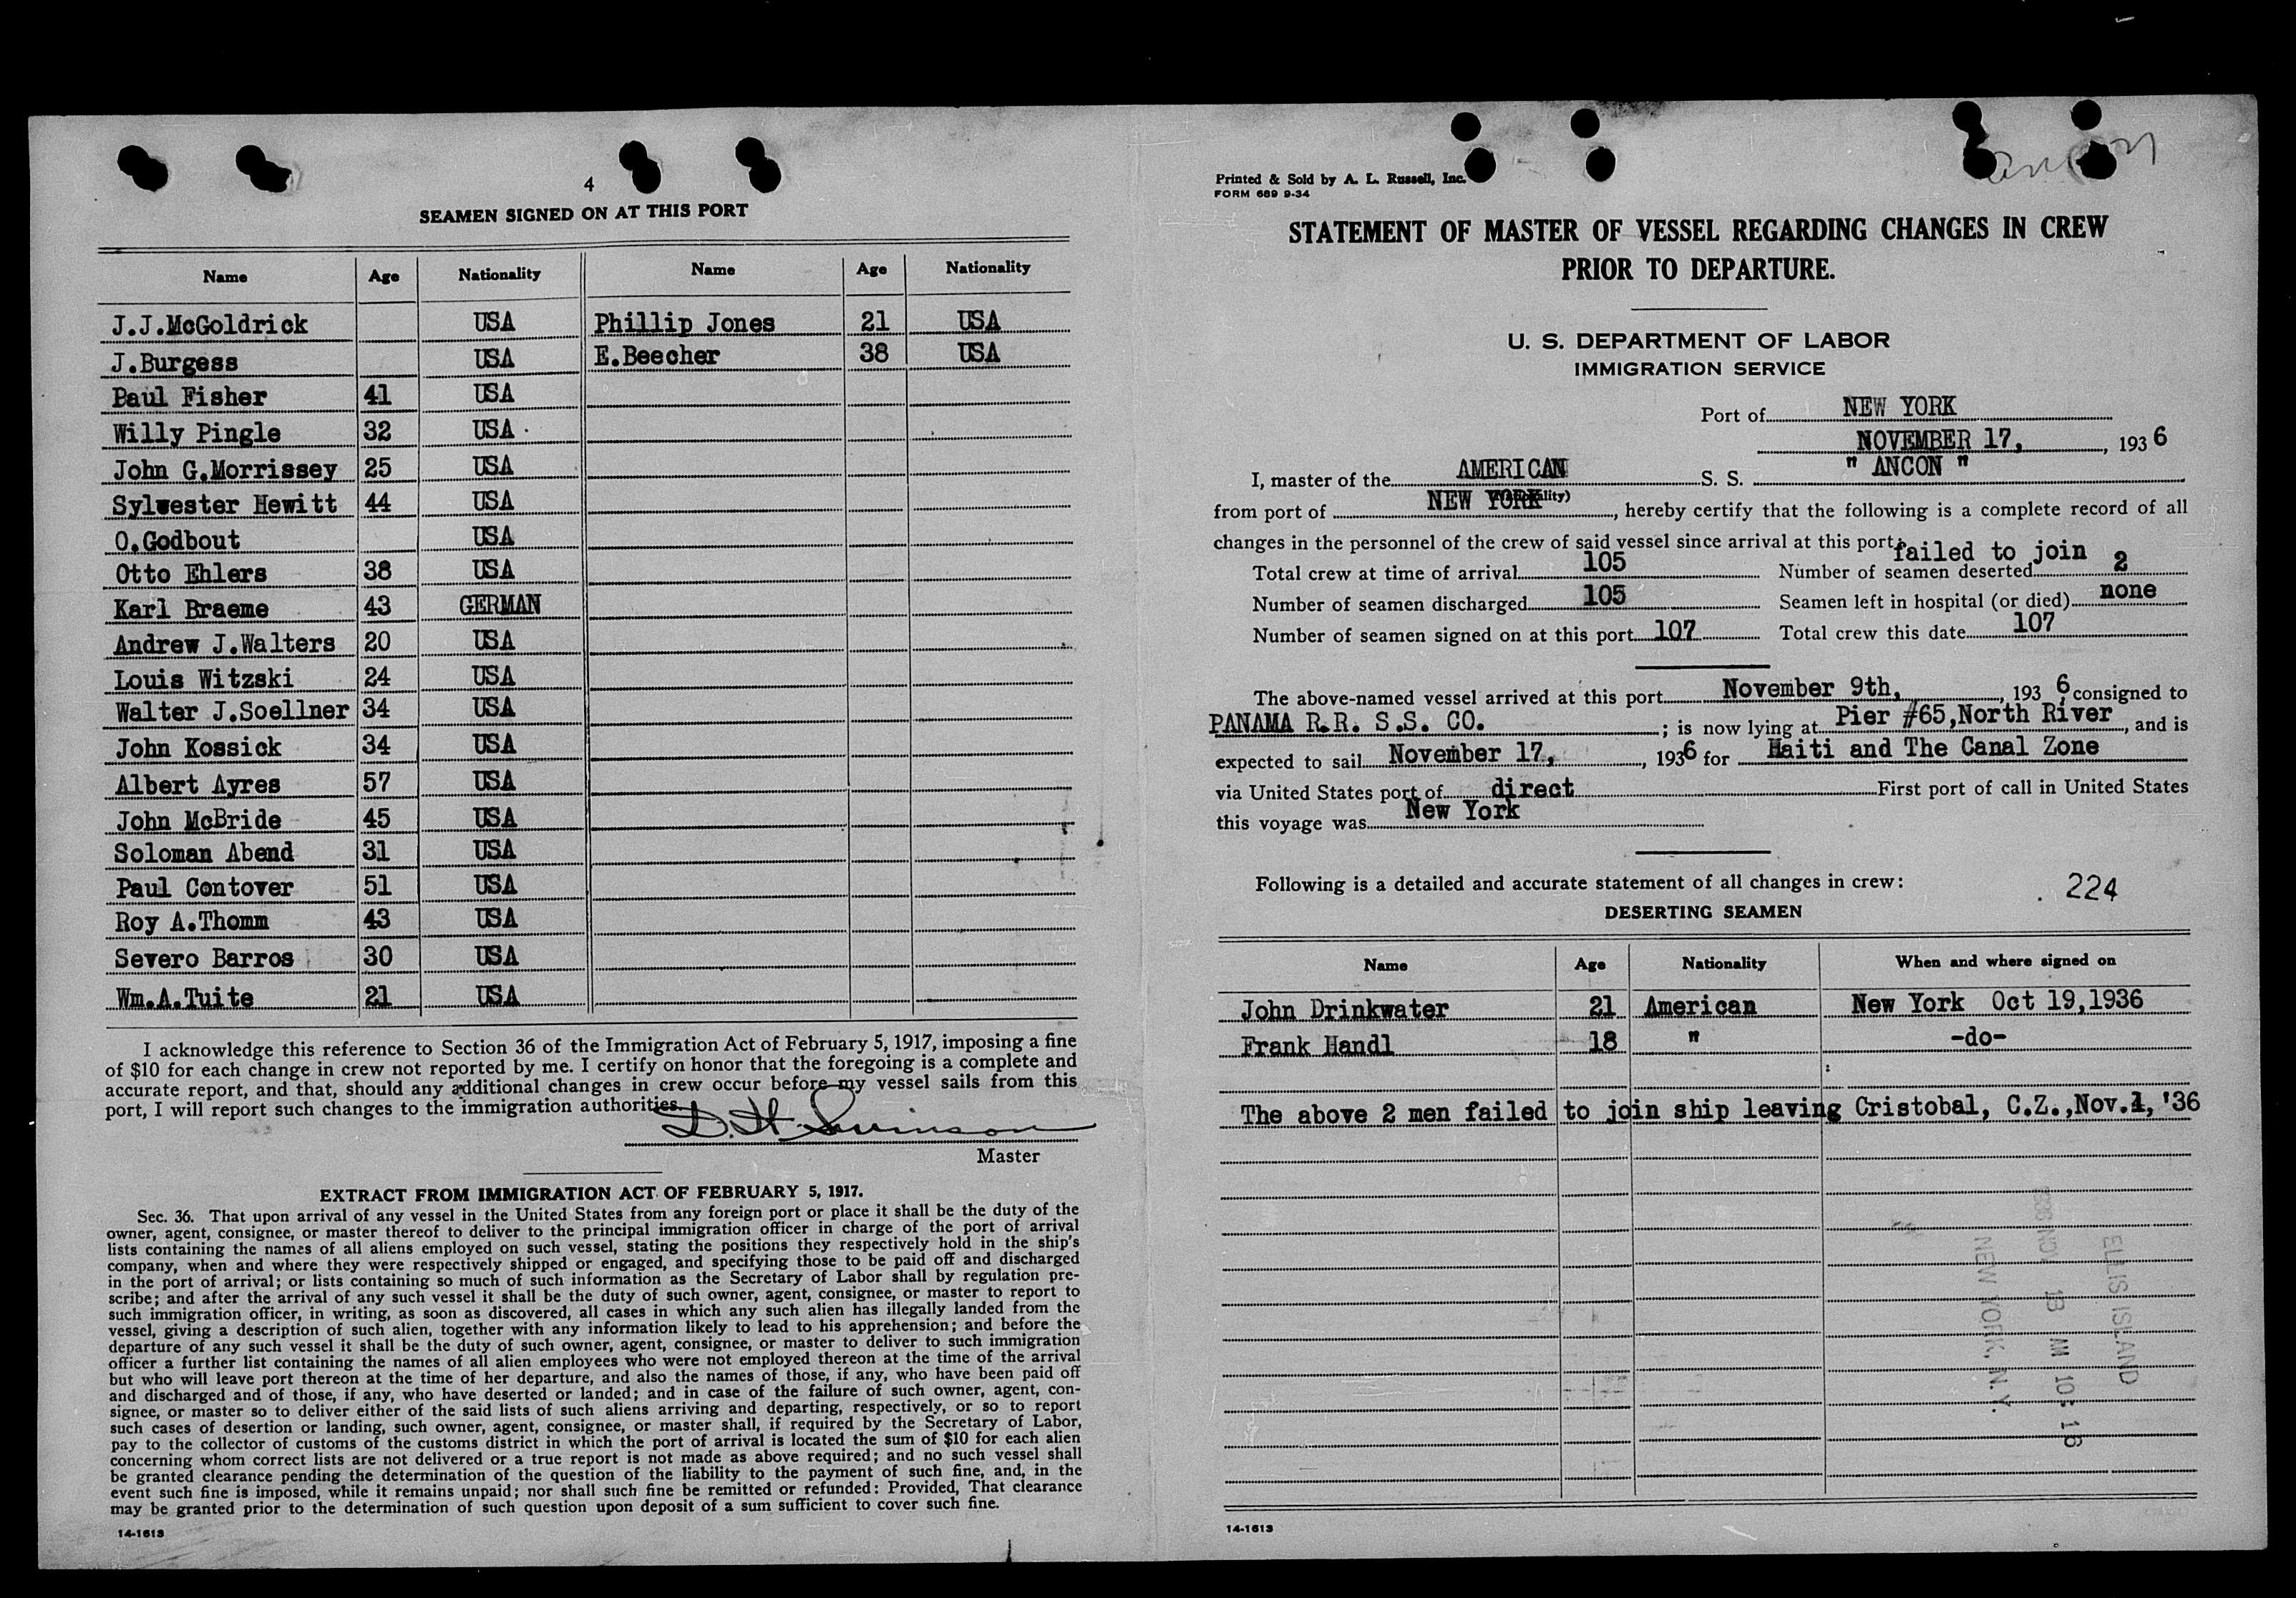 4
SEAMEN SIGNED ON AT THIS PORT
Name Age Nationality Name Age Nationality
J.J.McGoldrick USA Phillip Jones 21 USA
J.Burgess USA E.Beecher 38 USA
Paul Fisher 41 USA
Willy Pingle 32 USA
John G.Morrissey 25 USA
Sylvester Hewitt 44 USA
O.Godbout USA
Otto Ehlers 38 USA
Karl Braeme 43 GERMAN
Andrew J.Walters 20 USA
Louis Witzski 24 USA
Walter J.Soellner 34 USA
John Kossick 34 USA
Albert Ayres 57 USA
John McBride 45 USA
Soloman Abend 31 USA
Paul Contover 51 USA
Roy A.Thomm 43 USA
Severo Barros 30 USA
Wm.A.Tuite 21 USA
I acknowledge this reference to Section 36 of the Immigration Act of February 5, 1917, imposing a fine
of $10 for each change in crew not reported by me. I certify on honor that the foregoing is a complete and
accurate report, and that, should any additional changes in crew occur before my vessel sails from this
port, I will report such changes to the immigration authorities.
D. H. Swinson
Master
EXTRACT FROM IMMIGRATION ACT OF FEBRUARY 5, 1917.
Sec. 36. That upon arrival of any vessel in the United States from any foreign port or place it shall be the duty of the
owner, agent, consignee, or master thereof to deliver to the principal immigration officer in charge of the port of arrival
lists containing the names of all aliens employed on such vessel, stating the positions they respectively hold in the ship's
company, when and where they were respectively shipped or engaged, and specifying those to be paid off and discharged
in the port of arrival; or lists containing so much of such information as the Secretary of Labor shall by regulation pre-
scribe; and after the arrival of any such vessel it shall be the duty of such owner, agent, consignee, or master to report to
such immigration officer, in writing, as soon as discovered, all cases in which any such alien has illegally landed from the
vessel, giving a description of such alien, together with any information likely to lead to his apprehension; and before the
departure of any such vessel it shall be the duty of such owner, agent, consignee, or master to deliver to such immigration
officer a further list containing the names of all alien employees who were not employed thereon at the time of the arrival
but who will leave port thereon at the time of her departure, and also the names of those, if any, who have been paid off
and discharged and of those, if any, who have deserted or landed; and in case of the failure of such owner, agent, con-
signee, or master so to deliver either of the said lists of such aliens arriving and departing, respectively, or so to report
such cases of desertion or landing, such owner, agent, consignee, or master shall, if required by the Secretary of Labor,
pay to the collector of customs of the customs district in which the port of arrival is located the sum of $10 for each alien
concerning whom correct lists are not delivered or a true report is not made as above required; and no such vessel shall
be granted clearance pending the determination of the question of the liability to the payment of such fine, and, in the
event such fine is imposed, while it remains unpaid; nor shall such fine be remitted or refunded: Provided, That clearance
may be granted prior to the determination of such question upon deposit of a sum sufficient to cover such fine.
14-1613
Printed & Sold by A. L. Russell, Inc.
FORM 689 9-34
STATEMENT OF MASTER OF VESSEL REGARDING CHANGES IN CREW
PRIOR TO DEPARTURE.
U. S. DEPARTMENT OF LABOR
IMMIGRATION SERVICE
Port of NEW YORK
NOVEMBER 17, , 1936
I, master of the AMERICAN S. S. " ANCON "
from port of NEW YORK , hereby certify that the following is a complete record of all
changes in the personnel of the crew of said vessel since arrival at this port:
failed to join
Total crew at time of arrival 105 Number of seamen deserted 2
Number of seamen discharged 105 Seamen left in hospital (or died) none
Number of seamen signed on at this port 107 Total crew this date 107
The above-named vessel arrived at this port November 9th, , 1936 consigned to
PANAMA R.R. S.S. CO. ; is now lying at Pier #65,North River , and is
expected to sail November 17, , 1936 for Haiti and The Canal Zone
via United States port of direct First port of call in United States
this voyage was New York
Following is a detailed and accurate statement of all changes in crew:
. 224
DESERTING SEAMEN
Name Age Nationality When and where signed on
John Drinkwater 21 American New York Oct 19,1936
Frank Handl 18 " -do-
The above 2 men failed to join ship leaving Cristobal, C.Z.,Nov.1,'36
ELLIS ISLAND
1936 NOV 18 AM 10:16
NEW YORK, N.Y.
14-1613